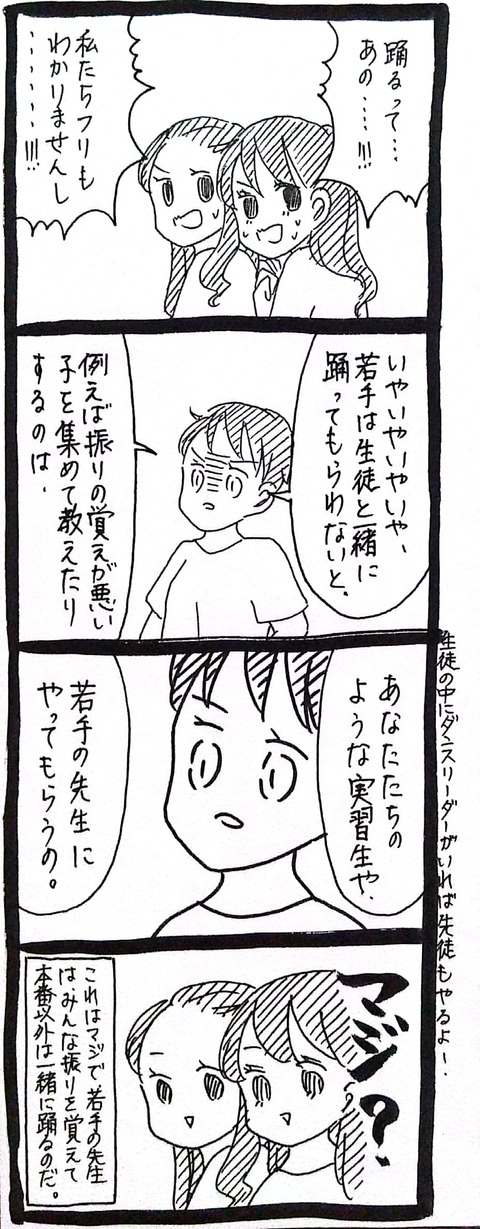 踊るって…
あの……!!!
私たちフリも
わかりませんし
………!!!
いやいやいやいや、
若手は生徒と一緒に
踊ってもらわないと、
例えば振りの覚えが悪い
子を集めて教えたり
するのは、
あなたたちの
ような実習生や、
若手の先生に
やってもらうの。
生徒の中にダンスリーダーがいれば生徒もやるよー。
マジ?
これはマジで若手の先生
は、みんな振りを覚えて
本番以外は一緒に踊るのだ。